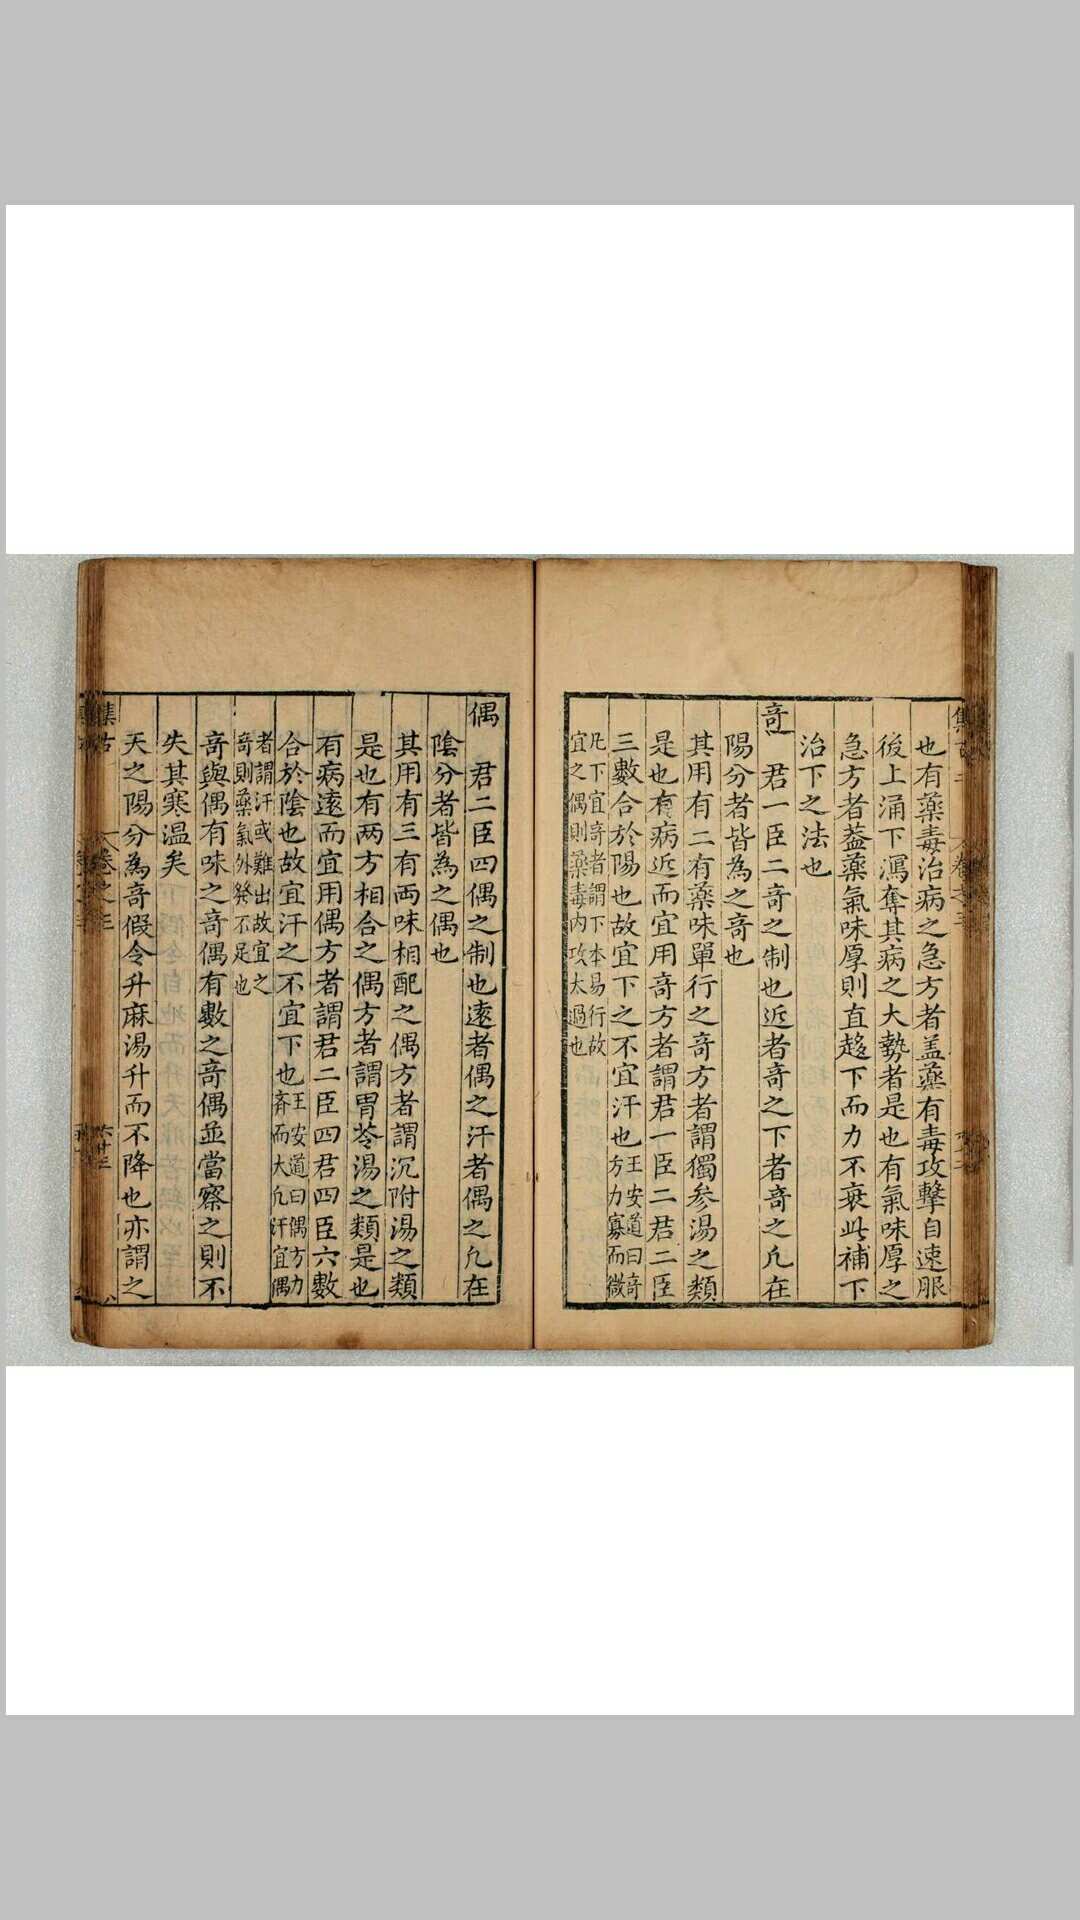 也有藥毒治病之急方者盖藥有毒攻擊自速服
後上涌下瀉奪其病之大勢者是也有氣味厚之
急方者葢藥氣味厚則直趍下而力不衰此補下
治下之法也
竒 君一臣二竒之制也近者竒之下者竒之凢在
陽分者皆為之竒也
其用有二有藥味單行之竒方者謂獨參湯之類
是也有病近而宜用竒方者謂君一臣二君二臣
三數合於陽也故宜下之不宜汗也王安道曰竒
方力寡而微
凢下宜竒者謂下本易行故
宜之偶則藥毒内攻太過也
偶 君二臣四偶之制也逺者偶之汗者偶之凢在
陰分者皆為之偶也
其用有三有两味相配之偶方者謂沉附湯之類
是也有两方相合之偶方者謂胃苓湯之類是也
有病逺而宜用偶方者謂君二臣四君四臣六數
合於陰也故宜汗之不宜下也王安道曰偶方力
齊而大凢汗宜偶
者謂汗或難出故宜之
竒則藥氣外發不足也
竒與偶有味之竒偶有數之竒偶並當察之則不
失其寒温矣
天之陽分為竒假令升麻湯升而不降也亦謂之
集古
卷之三
六廿三